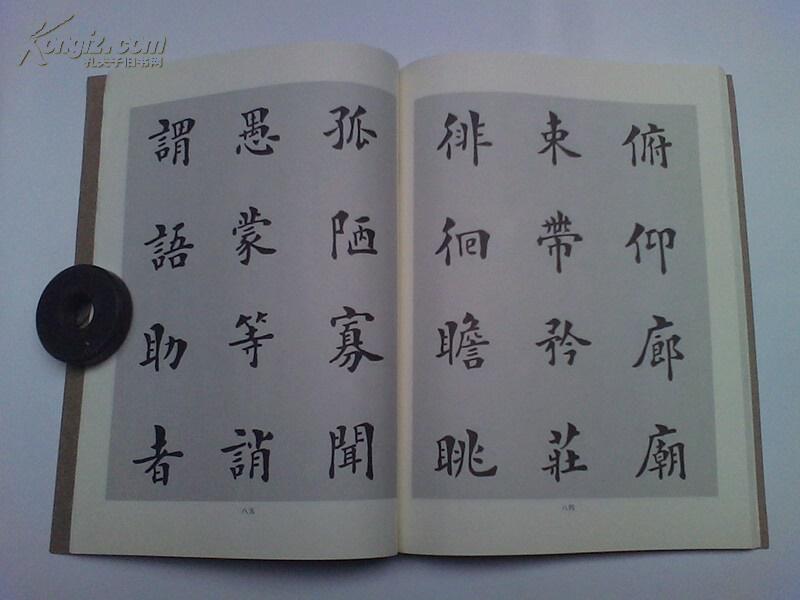 Kongfz.com
孔夫子旧书网
俯仰廊廟
束帶矜莊
徘徊瞻眺
八四
孤陋寡聞
愚蒙等誚
謂語助者
八五